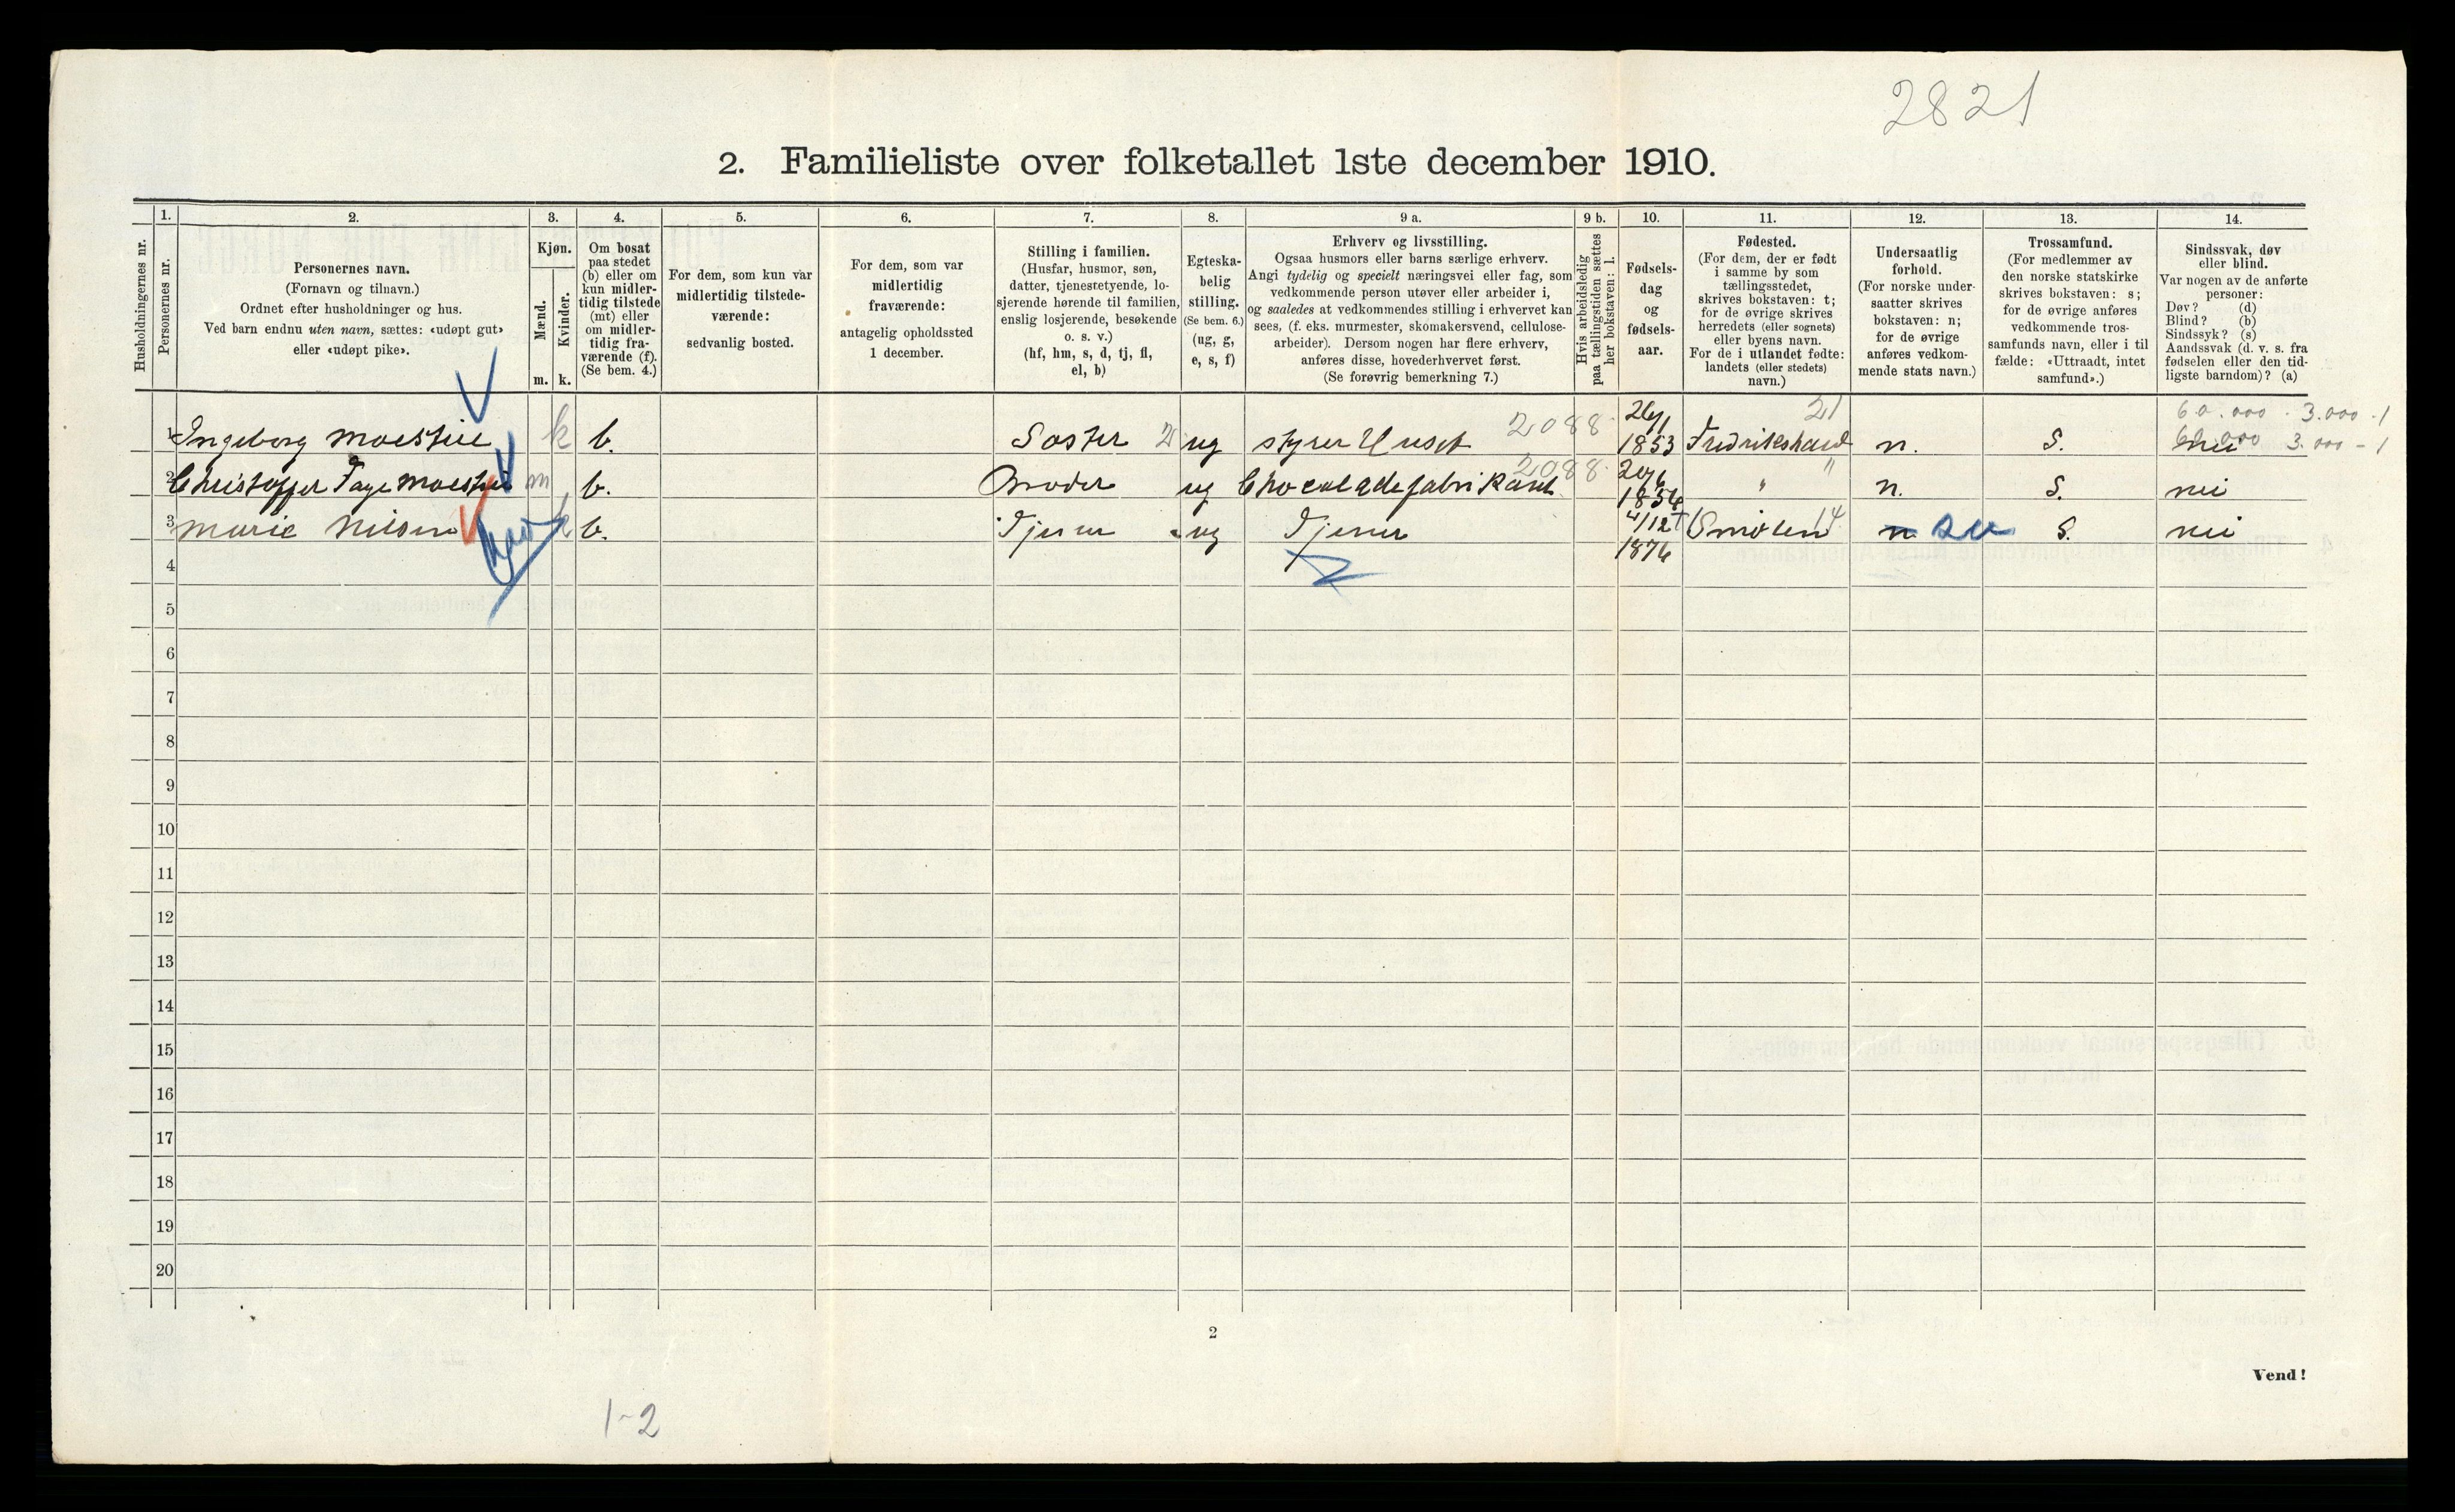 2821
2. Familieliste over folketallet 1ste december 1910.
Husholdningernes nr.
1.
Personernes nr.
2.
Personernes navn.
(Fornavn og tilnavn.)
Ordnet efter husholdninger og hus.
Ved barn endnu uten navn, sættes: «udøpt gut»
eller «udøpt pike».
3.
Kjøn.
Mænd.
Kvinder.
m.
k.
4.
Om bosat
paa stedet
(b) eller om
kun midler-
tidig tilstede
(mt) eller
om midler-
tidig fra-
værende (f).
(Se bem. 4.)
5.
For dem, som kun var
midlertidig tilstede-
værende:
sedvanlig bosted.
6.
For dem, som var
midlertidig
fraværende:
antagelig opholdssted
1 december.
7.
Stilling i familien.
(Husfar, husmor, søn,
datter, tjenestetyende, lo-
sjerende hørende til familien,
enslig losjerende, besøkende
o. s. v.)
(hf, hm, s, d, tj, fl,
el, b)
8.
Egteska-
belig
stilling.
(Se bem. 6.)
(ug, g,
e, s, f)
9 a.
Erhverv og livsstilling.
Ogsaa husmors eller barns særlige erhverv.
Angi tydelig og specielt næringsvei eller fag, som
vedkommende person utøver eller arbeider i,
og saaledes at vedkommendes stilling i erhvervet kan
sees, (f. eks. murmester, skomakersvend, cellulose-
arbeider). Dersom nogen har flere erhverv,
anføres disse, hovederhvervet først.
(Se forøvrig bemerkning 7.)
9 b.
Hvis arbeidsledig
paa tællingstiden sættes
her bokstaven: l.
10.
Fødsels-
dag
og
fødsels-
aar.
11.
Fødested.
(For dem, der er født
i samme by som
tællingsstedet,
skrives bokstaven: t;
for de øvrige skrives
herredets (eller sognets)
eller byens navn.
For de i utlandet fødte:
landets (eller stedets)
navn.)
12.
Undersaatlig
forhold.
(For norske under-
saatter skrives
bokstaven: n;
for de øvrige
anføres vedkom-
mende stats navn.)
13.
Trossamfund.
(For medlemmer av
den norske statskirke
skrives bokstaven: s;
for de øvrige anføres
vedkommende tros-
samfunds navn, eller i til
fælde: «Uttraadt, intet
samfund».)
14.
Sindssvak, døv
eller blind.
Var nogen av de anførte
personer:
Døv? (d)
Blind? (b)
Sindssyk? (s)
Aandssvak (d. v. s. fra
fødselen eller den tid-
ligste barndom)? (a)
21
60.000 - 3.000 - 1
1 Ingeborg Moestue k b. Søster ug styrer Huset 2088 26/1 1853 Fredrikshald n. S. nei 3.000 - 1
2 Christoffer Faye Moestue m b. Broder ug Chocoladefabrikant 2088 1854 " n. S. nei
3 Marie Nilsen k b. Tjener ug Tjener 4/12 1876 Smølen 14 n S. nei
4
5
6
7
8
9
10
11
12
13
14
15
16
17
18
19
20
2
Vend!
1-2